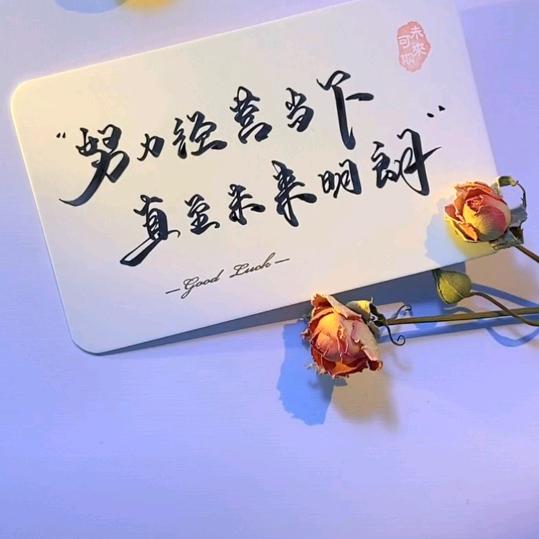 “努力经营当下
真至未来明朗”
—Good Luck—
未来可期